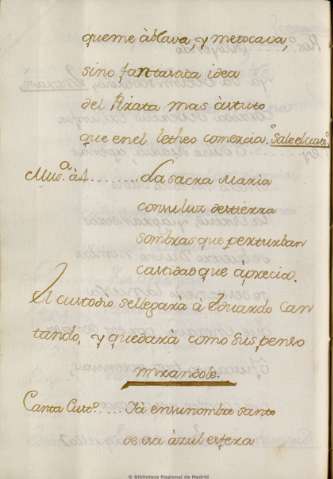 que me ablava, y me tocava,
sino fantastica idea
del Pirata mas astuto
que en el Letheo comercia. Sale el cust.º
Mus.ª à 4 ........ La sacra Maria
con su luz destierra
sombras que perturban
castidas que aprecia.
El custodio se llegara à Eduardo Can
tando, y quedara como suspenso
mirandole.
Canta Cust.º ..... Ya en su nombre santo
de esa azul esfera
© Biblioteca Regional de Madrid